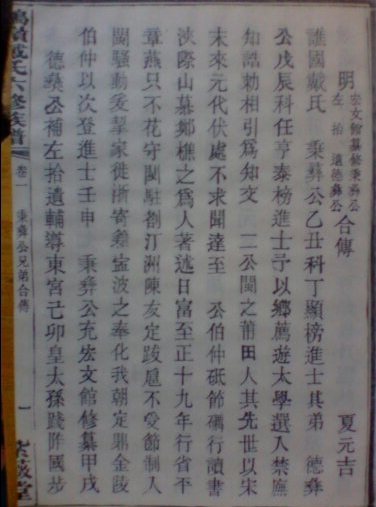 明
宏文館纂修秉彝公
左拾遺德彝公
合傳
夏元吉
護國戴氏 秉彝公乙丑科丁顯榜進士其弟 德彝
公戊辰科任亨泰榜進士予以鄉薦遊太學選入禁廡
知誥勅相引爲知交 二公閩之莆田人其先世以宋
末來元代伏處不求聞達至 公伯仲砥節礪行讀書
浹際山慕鄭樵之爲人著述日富至正十九年行省平
章燕只不花守閩駐劄汀洲陳友定跋扈不受節制入
閩騷動爰挈家徙浙寄籍寍波之奉化我朝定鼎金陵
伯仲以次登進士壬申 秉彝公充宏文館修纂甲戌
德彝公補左拾遺輔導東宮己卯皇太孫踐阼國步
戴氏六修族譜
卷一
秉彝公兄弟合傳
一